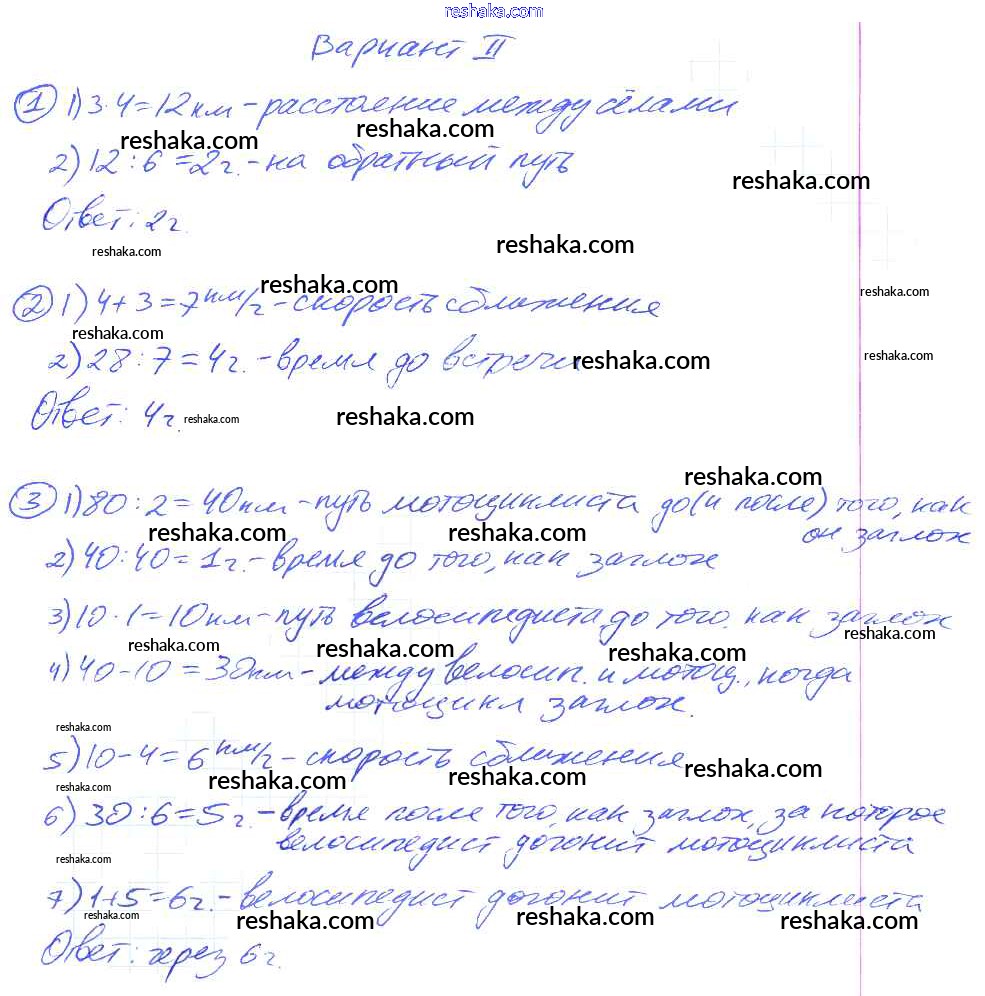 reshaka.com
Вариант II
1 1) 3·4=12км - расстояние между сёлами
reshaka.com reshaka.com
2) 12:6=2ч. - на обратный путь
reshaka.com
Ответ: 2ч.
reshaka.com reshaka.com
reshaka.com reshaka.com
2 1) 4+3=7км/ч - скорость сближения
reshaka.com
2) 28:7=4ч. - время до встречи
reshaka.com reshaka.com
Ответ: 4ч.
reshaka.com reshaka.com
reshaka.com
3 1) 80:2=40км - путь мотоциклиста до (и после) того, как
он заглох
reshaka.com reshaka.com
2) 40:40=1ч. - время до того, как заглох
3) 10·1=10км - путь велосипедиста до того, как заглох
reshaka.com reshaka.com reshaka.com reshaka.com
4) 40-10=30км - между велосип. и мотоц., когда
мотоцикл заглох.
reshaka.com
5) 10-4=6км/ч - скорость сближения
reshaka.com reshaka.com reshaka.com
reshaka.com
6) 30:6=5ч. - время после того, как заглох, за которое
велосипедист догонит мотоциклиста
reshaka.com
7) 1+5=6ч. - велосипедист догонит мотоциклиста
reshaka.com reshaka.com reshaka.com reshaka.com
Ответ: через 6ч.